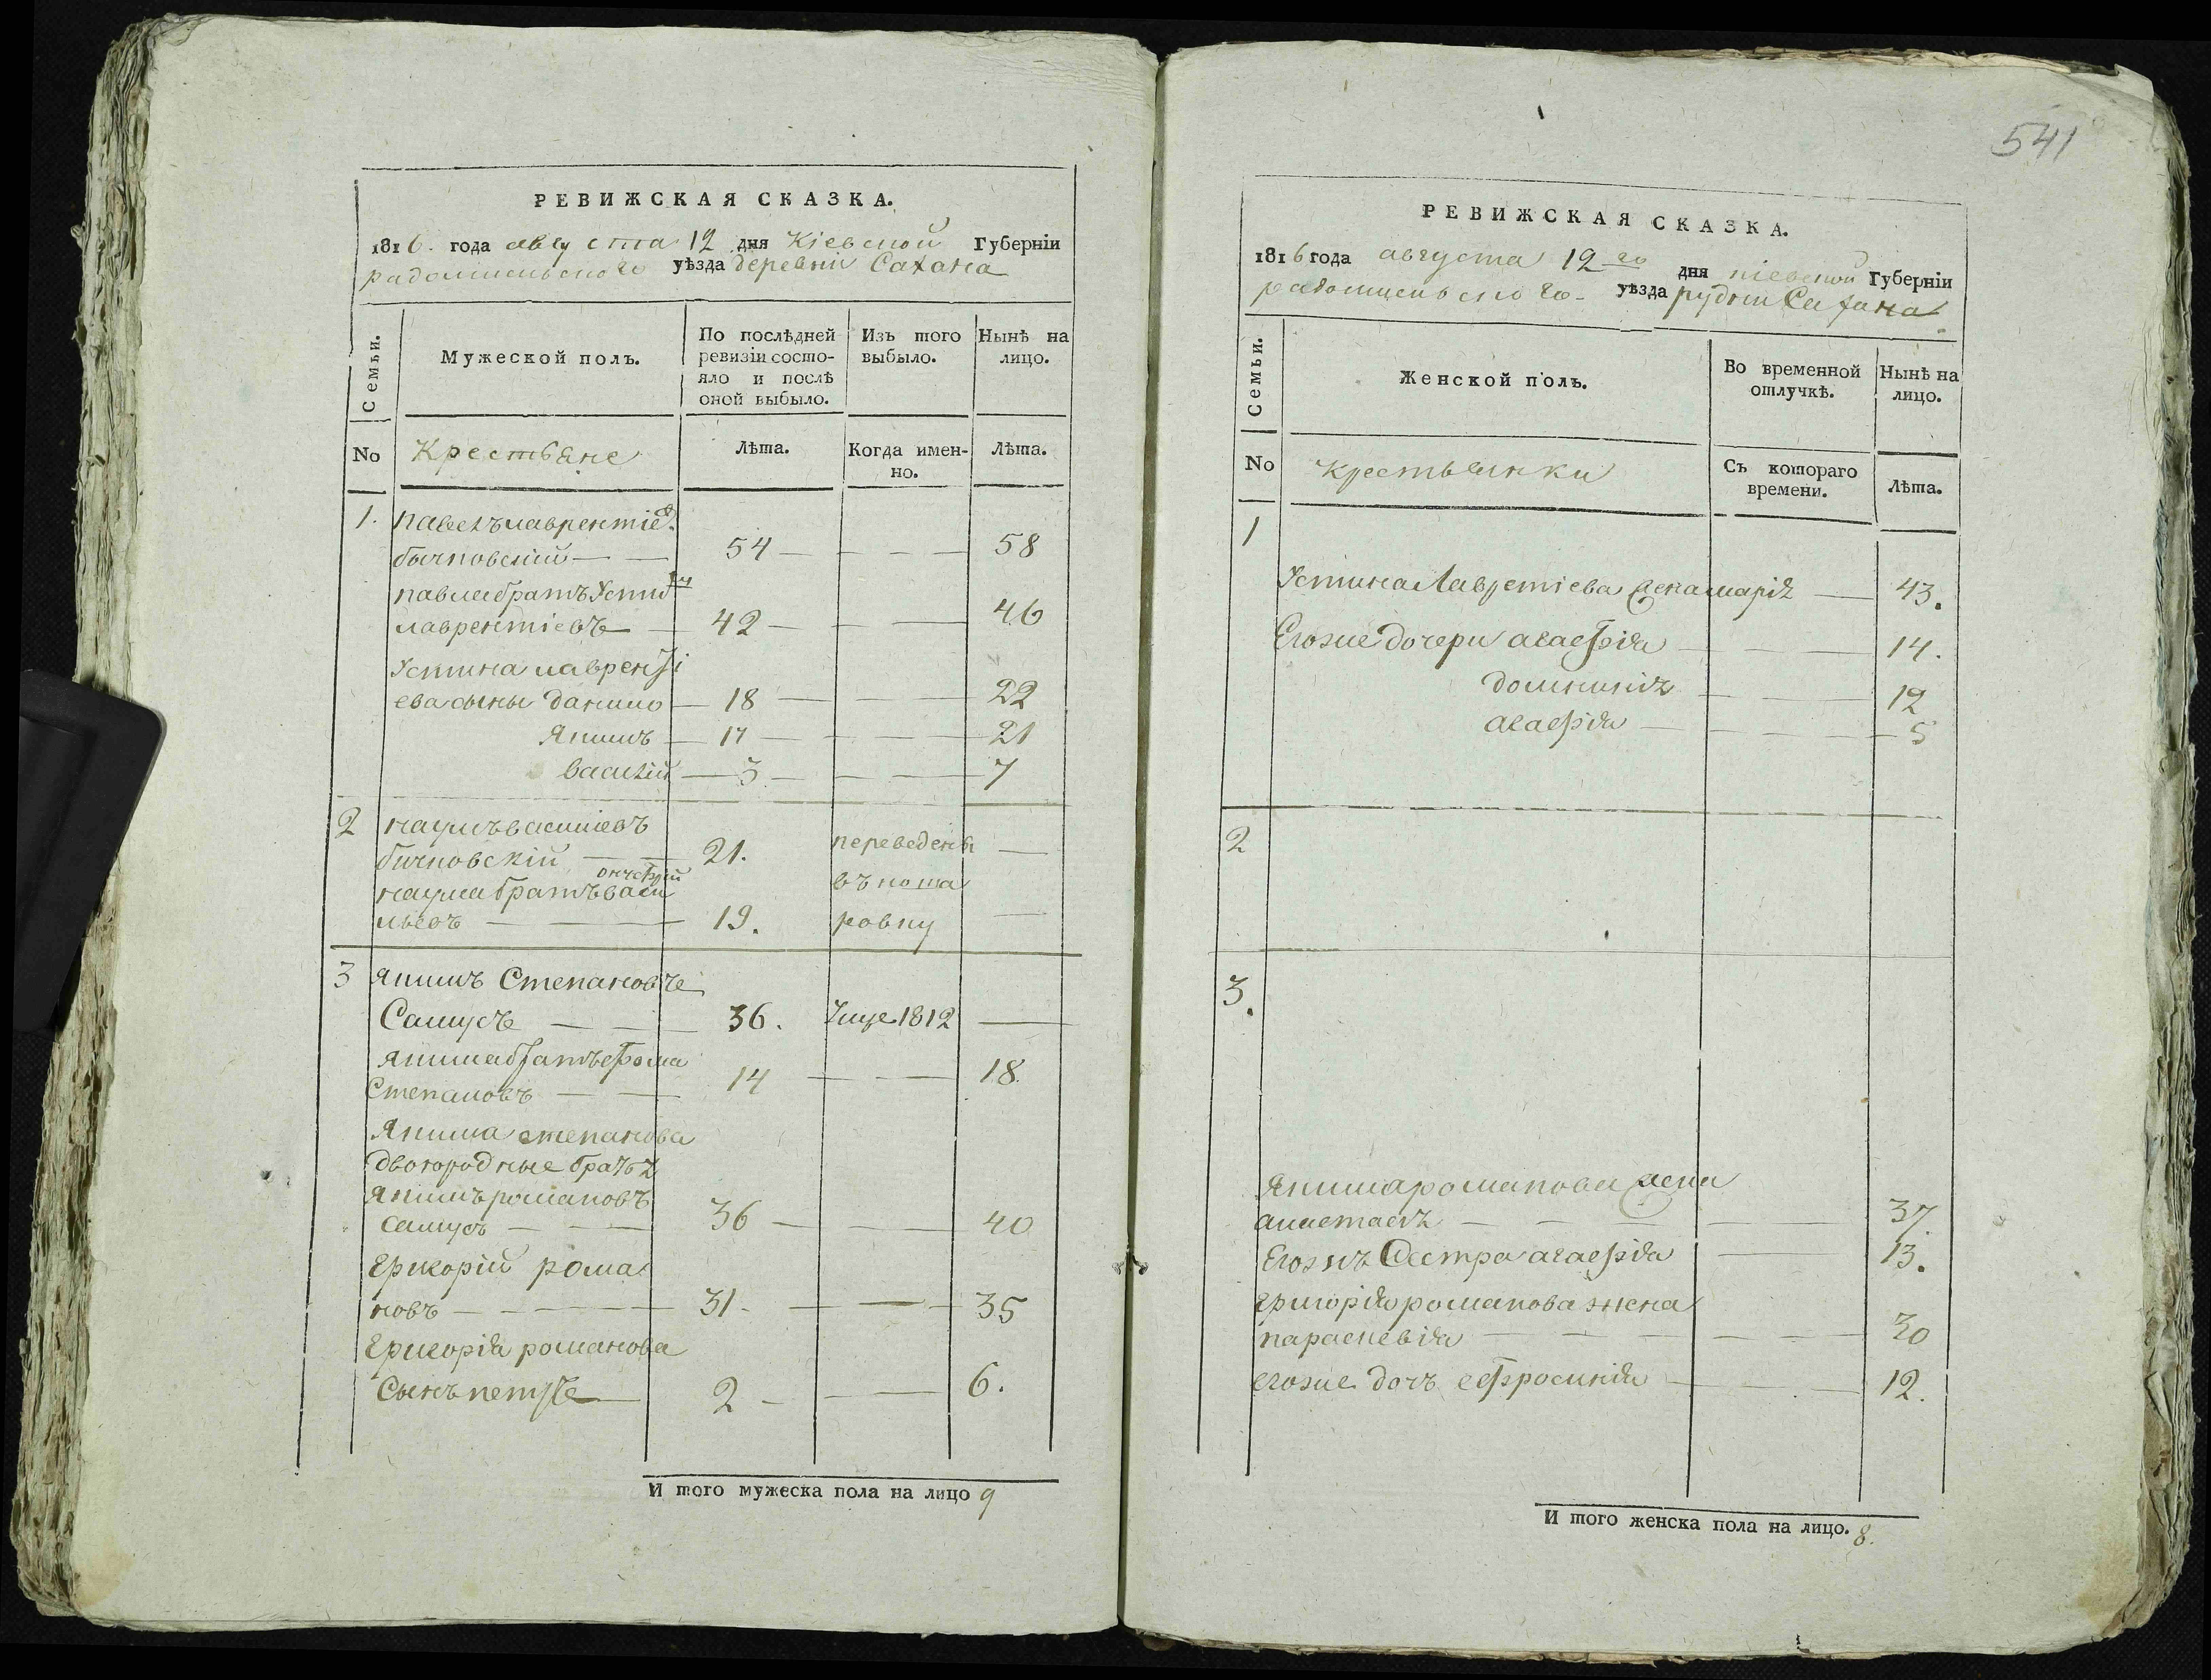 541
РЕВИЖСКАЯ СКАЗКА.
1816. года августа 12 дня Кіевской Губерніи
радомисльского уѣзда деревни Сахана
Семьи.
Мужеской полъ.
По послѣдней ревизіи состо-
яло и послѣ
оной выбыло.
Изъ того
выбыло.
Нынѣ на
лицо.
No Крестьяне Лѣта. Когда имен-
но. Лѣта.
1. павелъ лаврентіев
бычковскій 54 58
павла братъ Устин
лаврентіевъ 42 46
Устина лавренті
ева сыны данило 18 22
Якимъ 17 21
василій 3 7
2 наумъ василіевъ
бичковскій 21. переведены
наума братъ васи
льевъ 19. ровку
3 якимъ Степановъ
Самусъ 36. 1812
якима братъ фома
Степановъ 14 18.
Якима степанова
двоюродные братья
якимъ романовъ
самусь 36 40
григорій рома
новъ 31. 35
григорія романова
Сынъ петръ 2 6.
И того мужеска пола на лицо 9
РЕВИЖСКАЯ СКАЗКА.
1816 года августа 12 го дня кіевской Губерніи
радомисльского уѣзда рудни Сахана
Семьи.
Женской полъ.
Во временной
отлучкѣ.
Нынѣ на
лицо.
No крестьянки Съ котораго
времени. Лѣта.
1
Устина Лавретіева жена марія 43.
Егоже дочери агафія 14.
домникія 12
агафія 5
2
3.
Якима романова жена
анастасія 37
Егожъ Сестра агафія 13.
григорія романова жена
параскевія 30
егоже дочъ ефросинія 12.
И того женска пола на лицо. 8.